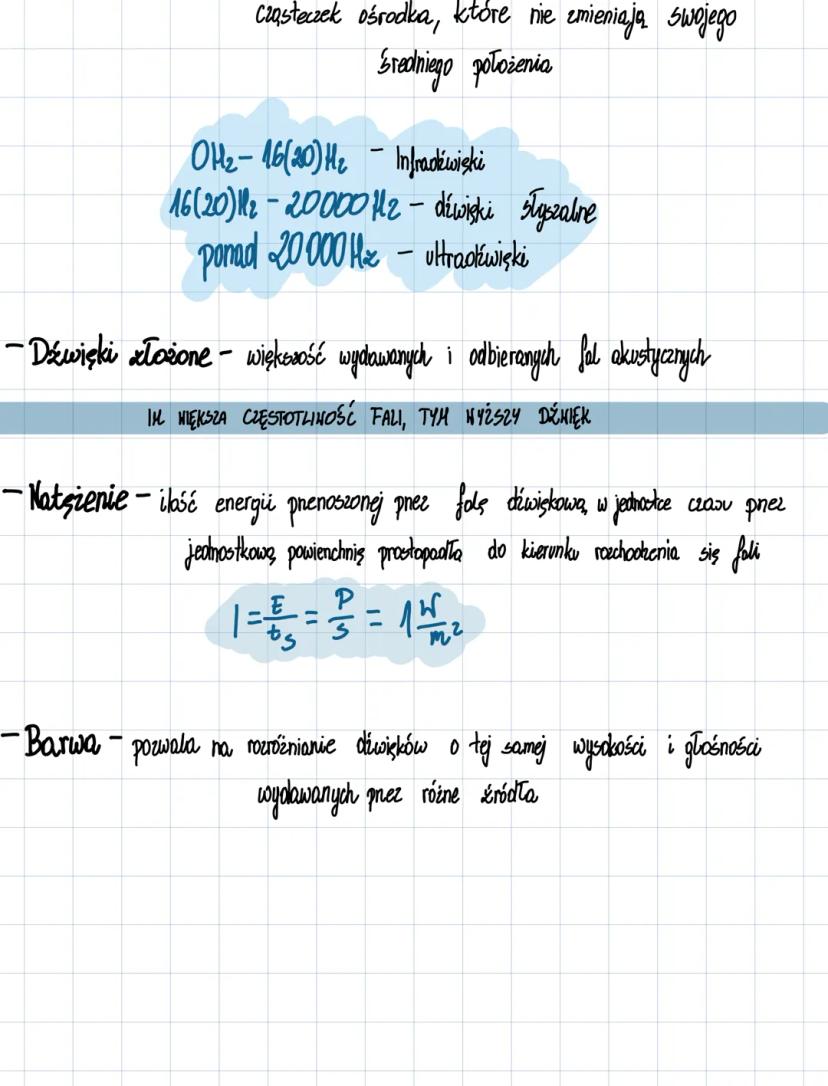 cząsteczek ośrodka, które nie zmieniają swojego
średniego położenia
0Hz - 16(20)Hz - Infradźwięki
16(20)Hz - 20000Hz - dźwięki słyszalne
ponad 20000Hz - ultradźwięki
- Dźwięki złożone - większość wydawanych i odbieranych fal akustycznych
IM WIĘKSZA CZĘSTOTLIWOŚĆ FALI, TYM WYŻSZY DŹWIĘK
- Natężenie - ilość energii przenoszonej przez falę dźwiękową w jednostce czasu przez
jednostkową powierzchnię prostopadłą do kierunku rozchodzenia się fali
I = E/ts = P/s = 1 W/m²
- Barwa - pozwala na rozróżnianie dźwięków o tej samej wysokości i głośności
wydawanych przez różne źródła